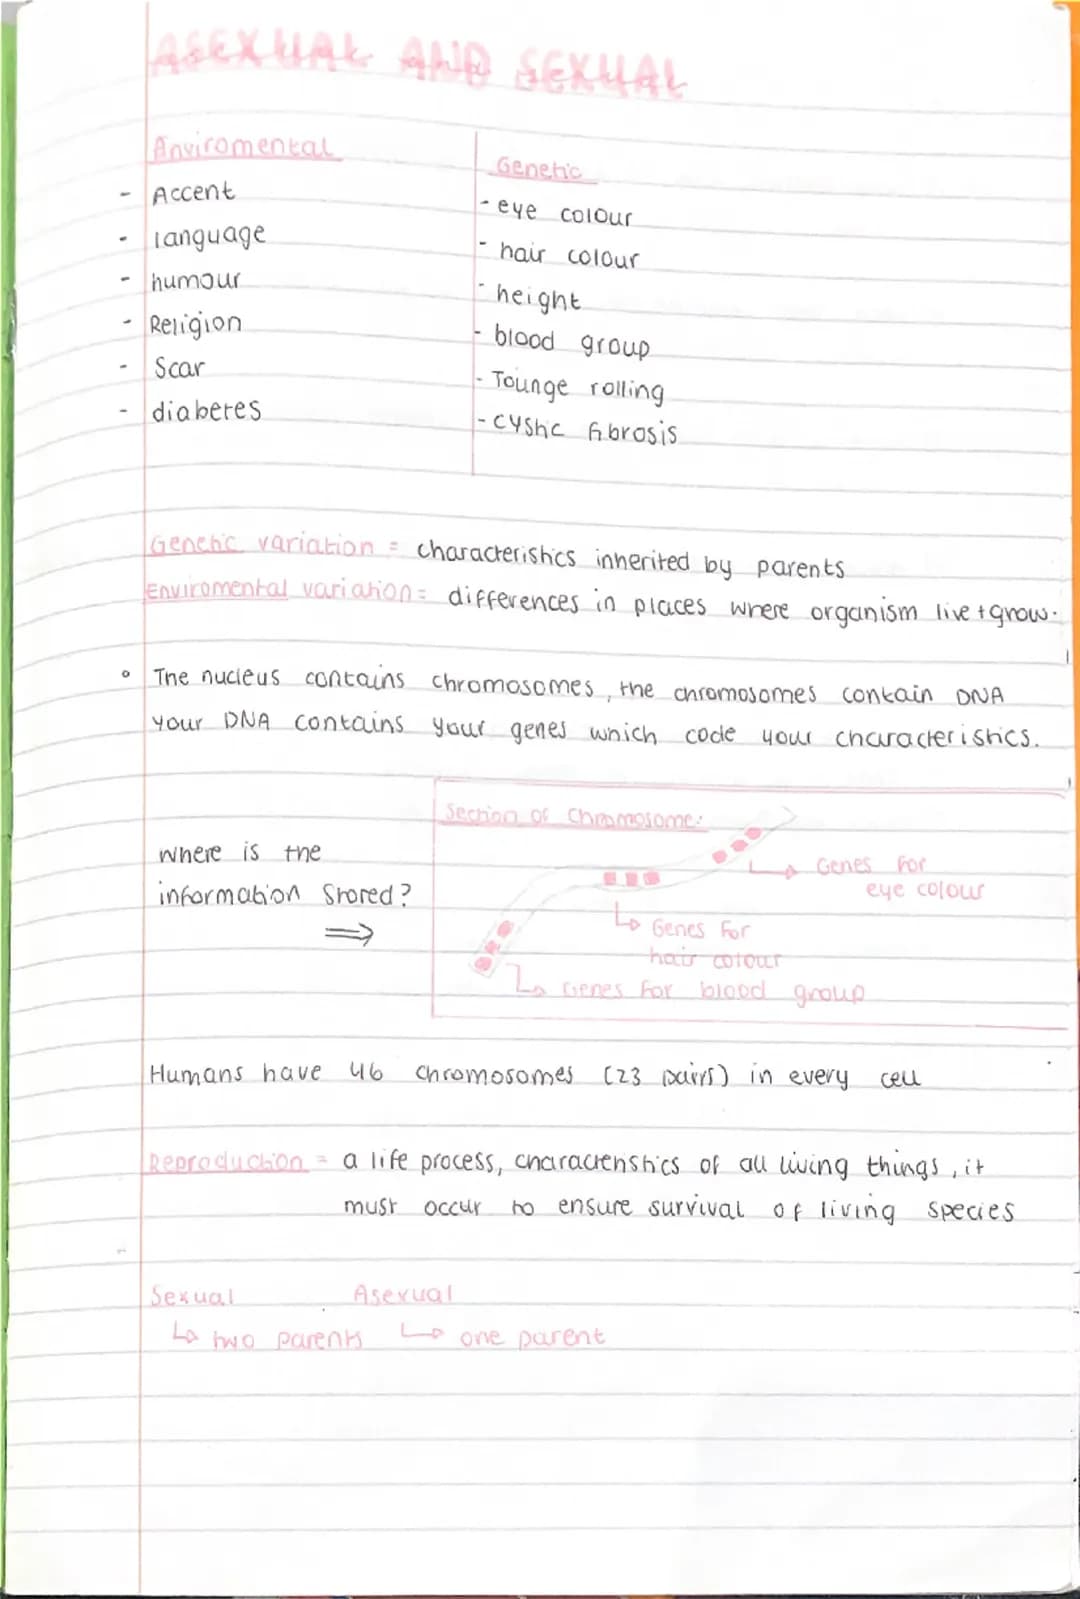 ASEXUAL AND SEXUAL
Asexual and Sexual
Anviromental
- Accent
- language
- humour
- Religion
- Scar
- diabetes
Genetic
- eye colour
- hair colour
- height
- blood group
- Tounge rolling
- cystic fibrosis
Genetic variation = characteristics inherited by parents
Enviromental variation = differences in places where organism live + grow.
• The nucleus contains chromosomes, the chromosomes contain DNA
your DNA contains your genes which code your characteristics.
where is the
information Stored?
⇒
Section of Chromosome:
↳ Genes for
eye colour
↳ Genes for
hair colour
↳ Genes for blood group
Humans have 46 chromosomes (23 pairs) in every cell
Reproduction = a life process, characteristics of all living things, it
must occur to ensure survival of living species
Sexual Asexual
↳ two parents ↳ one parent